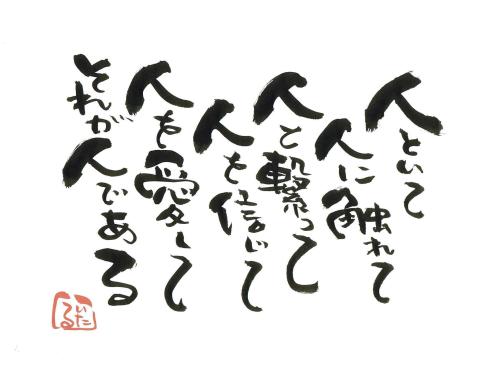 人といて
人に触れて
人と繋って
人を信じて
人を愛して
それが人である